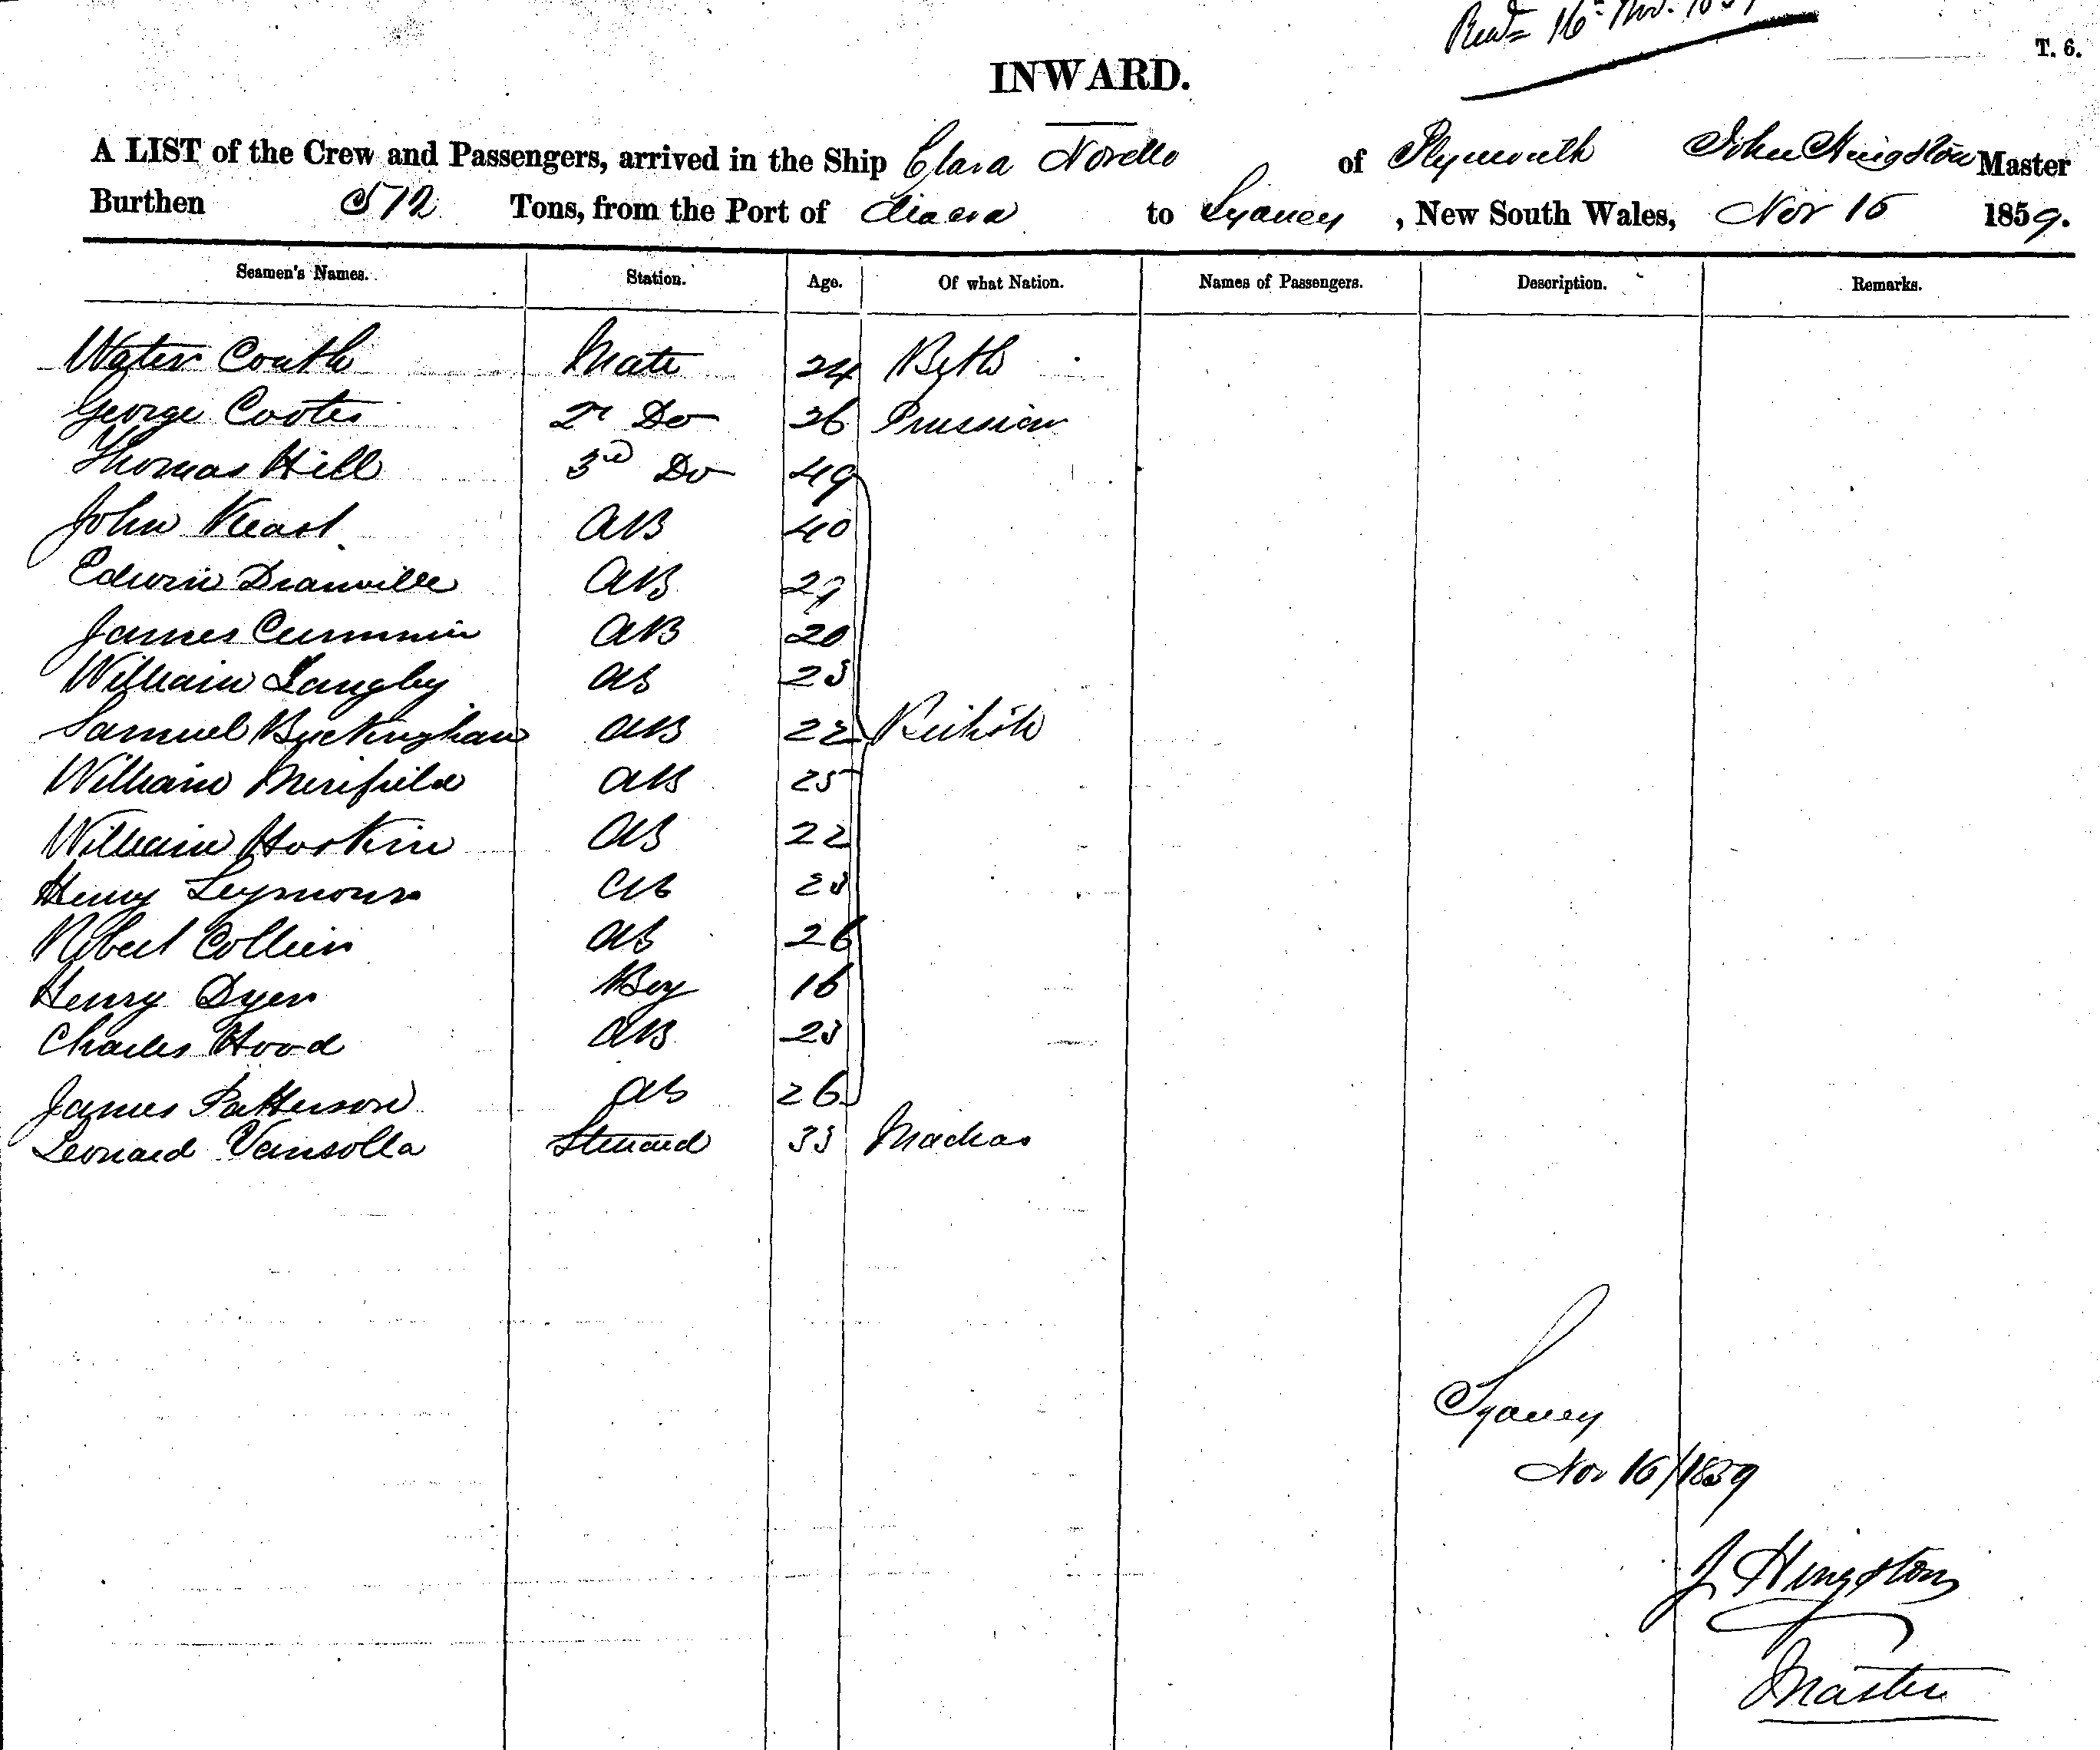 Recd 16th Nov. 1859
T. 6.
INWARD.
A LIST of the Crew and Passengers, arrived in the Ship Clara Novello of Plymouth John Hingston Master
Burthen 572 Tons, from the Port of to Sydney, New South Wales, Nov 16 1859.
Seamen's Names. Station. Age. Of what Nation. Names of Passengers. Description. Remarks.
Couth Mate 24
George Cootes 2d Do 26 Prussian
Thomas Hill 3rd Do 49
John Keast AB 40
Edwin AB 29
James Cummin AB 20
William Langby AB 23
Samuel Buckingham AB 22 British
William Merifield AB 25
William Hoskin AB 22
Henry Seymour AB 23
Robert Collier AB 26
Henry Dyer Boy 16
Charles Hood AB 23
James Patterson AB 26
Leonard Vansolla Steward 33 Madras
Sydney
Nov 16/1859
J Hingston
Master